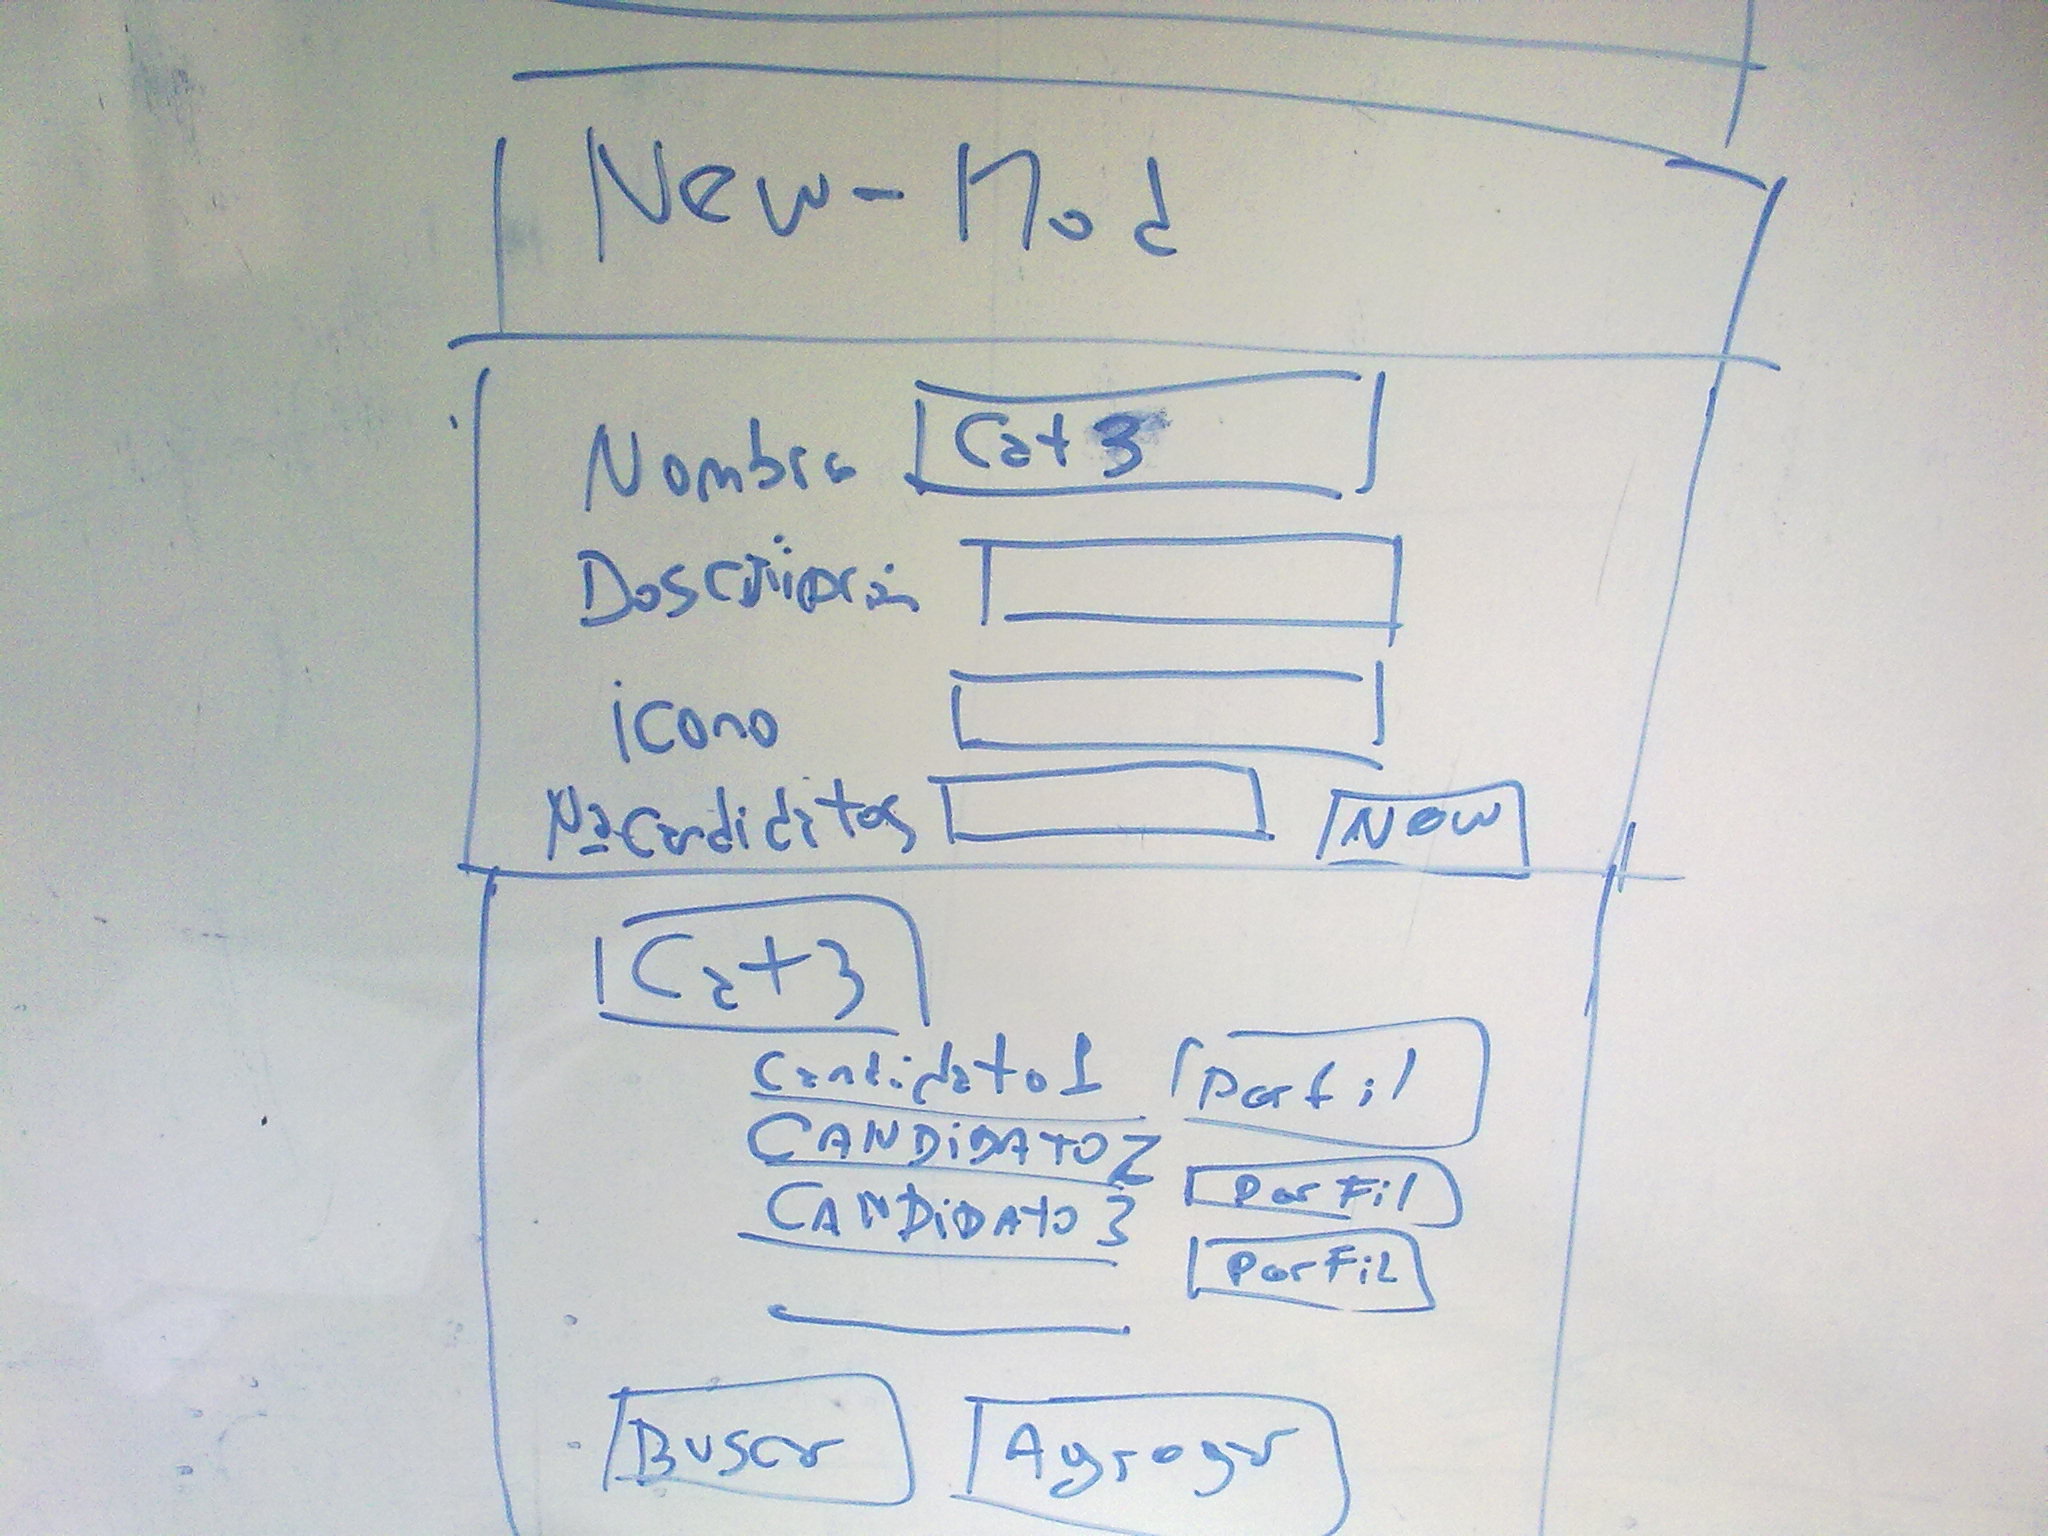 New-Mod
Nombre Cat 3
Descripción
icono
Nº Candidatos New
Cat 3
Candidato 1 Perfil
CANDIDATO 2 Perfil
CANDIDATO 3 PerFil
Buscar Agregar